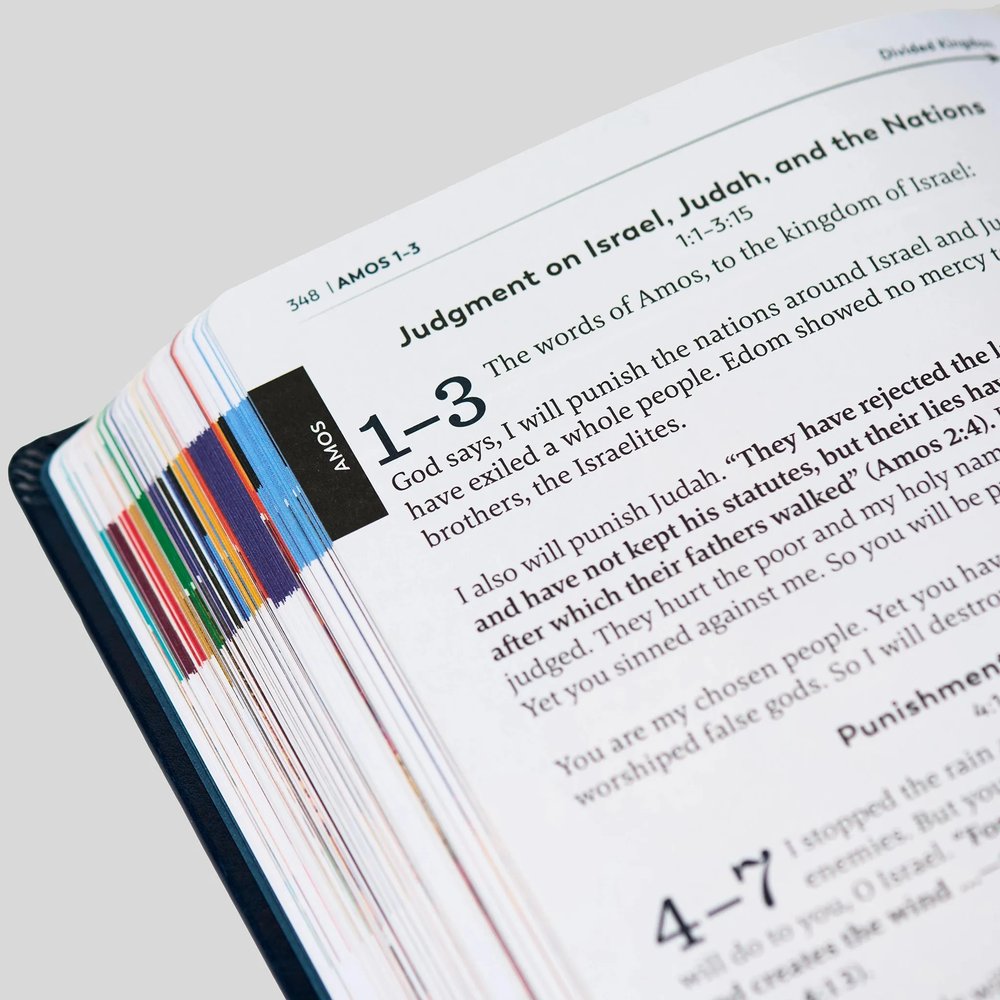 Divided Kingdom
348 | AMOS 1–3
Judgment on Israel, Judah, and the Nations
1:1–3:15
AMOS
1–3 The words of Amos, to the kingdom of Israel:
God says, I will punish the nations around Israel and
have exiled a whole people. Edom showed no mercy
brothers, the Israelites.
I also will punish Judah. “They have rejected the
and have not kept his statutes, but their lies
after which their fathers walked” (Amos 2:4).
judged. They hurt the poor and my holy
Yet you sinned against me. So you will be
You are my chosen people. Yet you
worshiped false gods. So I will
Punishment
4–7 I stopped the rain
enemies. But
will do to you, O Israel.
creates the wind ...